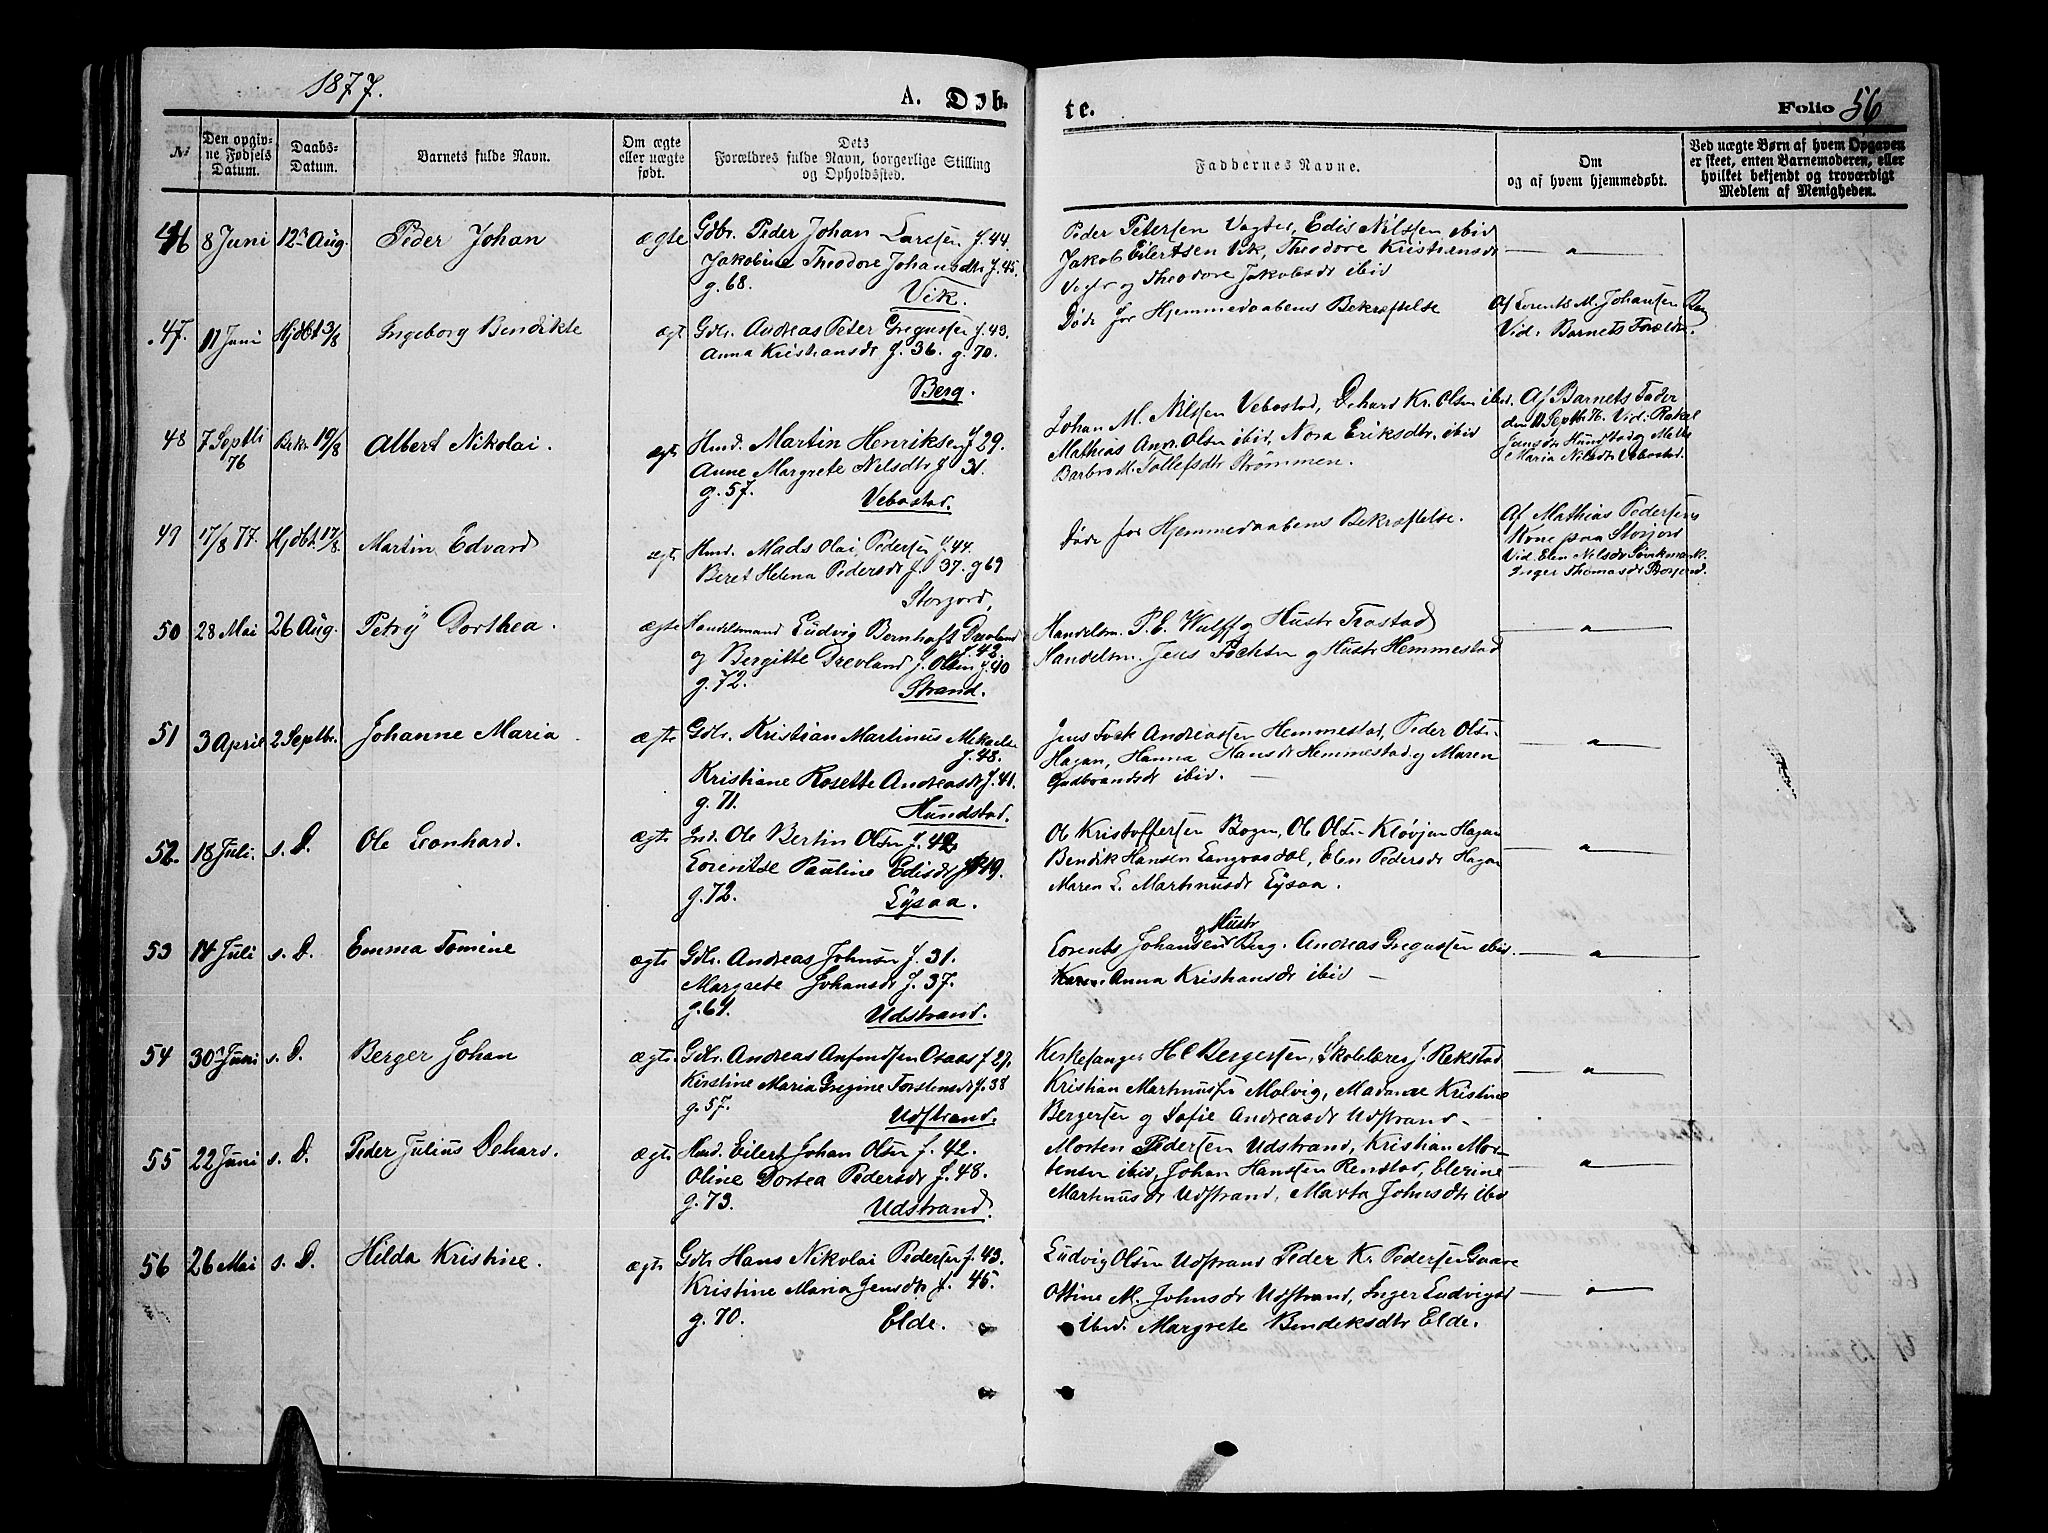 1877.
A. Døb-
te.
Folio 56
No
Den opgiv-
ne Fødsels
Datum.
Daabs-
Datum.
Barnets fulde Navn.
Om ægte
eller uægte
født.
Dets
Forældres fulde Navn, borgerlige Stilling
og Opholdssted.
Faddernes Navne.
Om
og af hvem hjemmedøbt.
Ved uægte Børn af hvem Opgaven
er skeet, enten Barnemoderen, eller
hvilket bekjendt og troværdigt
Medlem af Menigheden.
46 8 Juni 12 Aug. Peder Johan ægte Gdbr. Peder Johan Larssen f. 44.
Jakobine Theodore Johansdtr f. 45.
g. 68.
Vik.
Peder Petersen Vagter, Edis Nilssen ibid
Jakob Eilertsen Vik, Theodore Kristiansdr
og Theodore Jakobsdr ibid
— a —
47. 11 Juni Hjdbt 3/8 Ingeborg Bendikte ægt Gdbr. Andreas Peter Gregussen f. 43.
Anna Kristiansdr f. 36. g. 70.
Berg.
Døde før Hjemmedaabens Bekræftelse
Af Lorents M. Johansen
Vid. Barnets Foræld.
48 7 Septb 76 Bekr. 19/8 Albert Nikolai. ægt Hmd. Martin Henriksen f. 29.
Anne Margrete Nelsdtr f. 31.
g. 57.
Vebostad.
Johan M. Nilssen Vebostad, Dehard Kr. Olsen ibid.
Mathias Andr. Olsen ibid, Nora Eriksdtr. ibid
Barbro M. Tollefsdtr Strømmen.
Af Barnets Fader
den 11 Septb 76. Vid. Rakel
Jensdr Hundstad og Mette
Maria Nilsdr Vebostad.
49 17/8 77. Hjdbt. 17/8. Martin Edvard ægt Hmd. Mads Olai Pedersen f. 44.
Beret Helena Pedersdr f. 37. g 69
Storjord,
Døde før Hjemmedaabens Bekræftelse.
Af Mathias Pedersens
Kone paa Storjord
Vid Elen Nilsdr
Inger Thomasdr Storjord.
50 28 Mai 26 Aug. Petry Dorthea. ægte Handelsmand Ludvig Bernhoft Drevland
f. 42
og Bergitte Drevland f. Olsen f. 40
g. 72.
Strand.
Handelsm. P. C. Wulff og Hustr Trastad
Handelsm. Jens Fochsen og Hustr Hemmestad
— a —
51 3 April 2 Septbr. Johanne Maria ægte Gdbr. Kristian Martinus Mikaels.
f. 48.
Kristiane Rosette Andreasdr f. 41.
g. 71.
Hundstad.
Jens Fock Andreassen Hemmestad, Peder Olsen
Hagan, Hanna Hansdr Hemmestad og Maren
Gudbrandsdr ibid.
— a —
52. 18 Juli. s. D. Ole Leonhard. ægte Ind. Ole Bertin Olsen f. 42
Lorentse Pauline Edisdr f. 49.
g. 72.
Lysaa.
Ole Kristoffersen Bogen, Ole Olsen Kløvjen Hagan
Bendik Hansen Langvasdal, Elen Pedersdr Hagan
Maren L. Martinusdr Lysaa.
— a —
53 14 Juli s. D. Emma Tomine ægte Gdbr. Andreas Johnsen f. 31.
Margrete Johansdr f. 37.
g. 64.
Udstrand.
og Hustr
Lorents Johansen Berg. Andreas Gregussen ibid.
Anna Kristiansdr ibid —
— a —
54 30 Juni s. D. Berger Johan ægte Gdbr. Andreas Anfindsen Osaas f. 27.
Kirstine Maria Gregine Torstensdr f. 38
g. 57.
Udstrand.
Kirkesanger H C Bergersen, Skolelærer J. Rekstad
Kristian Martinussen Molvig, Madame Kristine
Bergersen og Sofie Andreasdr Udstrand —
— a —
55 22 Juni s. D. Peder Julius Dehard. ægte Hmd. Eilert Johan Olsen f. 42.
Oline Dortea Pedersdr f. 48.
g. 73.
Udstrand.
Morten Pedersen Udstrand, Kristian Mor-
tensen ibid, Johan Hansen Renstad, Elerine
Martinusdr Udstrand, Marta Johnsdtr ibid
— a —
56 26 Mai s. D. Hilda Kristine. ægte Gdbr Hans Nikolai Pedersen f. 43.
Kristine Maria Jensdtr f. 45.
g. 70.
Elde.
Ludvig Olsen Udstrand Peder K. Pedersen Gaare
Ottine M. Johnsdr Udstrand, Inger Ludvigsd
ibid. Margrete Bendeksdtr Elde.
— a —